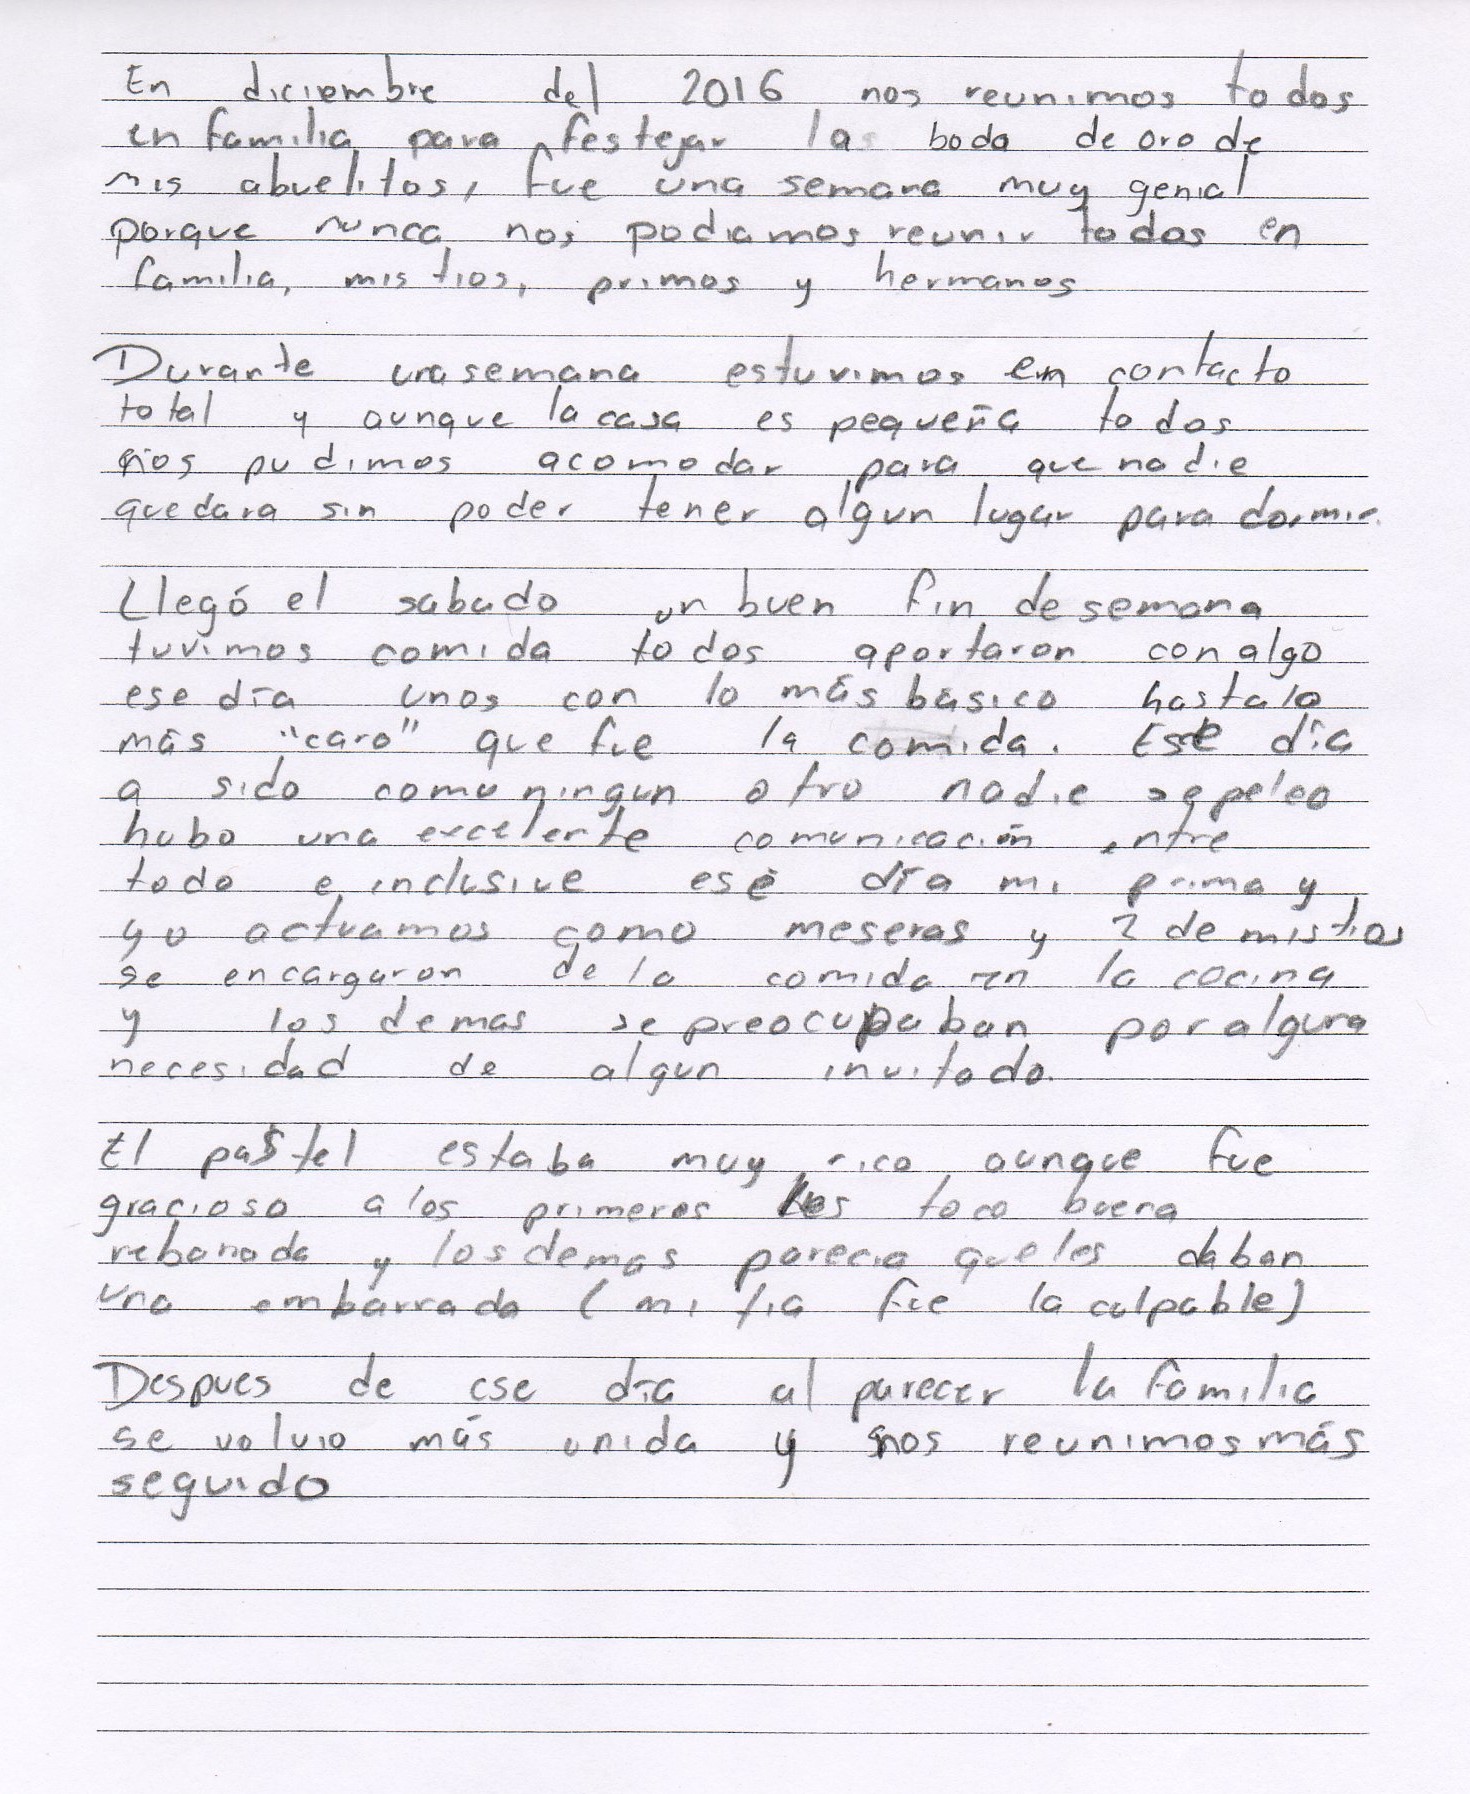 En diciembre del 2016 nos reunimos todos
en familia para festejar la boda de oro de
mis abuelitos, fue una semana muy genial
porque nunca nos podiamos reunir todos en
familia, mis tios, primos y hermanos
Durante una semana estuvimos en contacto
total y aunque la casa es pequeña todos
nos pudimos acomodar para que nadie
quedara sin poder tener algun lugar para dormir.
Llegó el sabado un buen fin de semana
tuvimos comida todos aportaron con algo
ese día unos con lo más básico hasta lo
más "caro" que fue la comida. Ese día
a sido como ningun otro nadie se peleo
hubo una excelente comunicación entre
todo e inclusive ese día mi prima y
yo actuamos como meseras y 2 de mis tios
se encargaron de la comida en la cocina
y los demas se preocupaban por alguna
necesidad de algun invitado.
El pastel estaba muy rico aunque fue
gracioso a los primeros les toco buena
rebanada y los demas parecia que les daban
una embarrada (mi tia fue la culpable)
Despues de ese día al parecer la familia
se volvio más unida y nos reunimos más
seguido